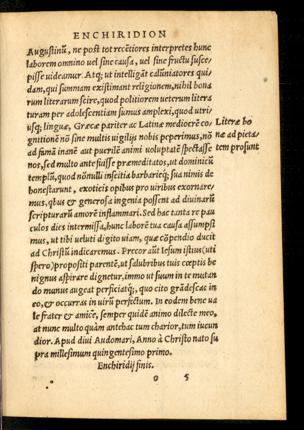 ENCHIRIDION
Augustinū, ne post tot recētiores interpretes hunc
laborem omnino vel sine causa, uel sine fructu susce-
pisse uideamur. Atq; ut intelligāt calūniatores qui-
dam, qui summam existimant religionem, nihil bona
rum literarum scire, quod politiorem ueterum litera
turam per adolescentiam sumus amplexi, quod utri-
usq; linguæ, Græcæ pariter ac Latinæ mediocrē co-
gnitionē nō sine multis uigilijs nobis peperimus, nō
ad famā inanē aut puerilē animi voluptatē spectasse
nos, sed multo ante fuisse præmeditatos, ut dominicū
templū, quod nōnulli inscitia barbarieq; sua nimis de
honestarunt, exoticis opibus pro viribus exornare-
mus, qbus & generosa ingenia possent ad diuinarū
scripturarū amorē inflammari. Sed hac tanta re pau
culos dies intermissa, hunc laborē tua causa assumpsi
mus, ut tibi veluti digito uiam, quæ cōpendio ducit
ad Christū indicaremus. Precor aūt Iesum istius (uti
spero) propositi parentē, ut salubribus tuis cœptis be
nignus aspirare dignetur, immo ut suum in te mutan
do munus augeat perficiatq;, quo cito grādescas in
eo, & occurras in virū perfectum. In eodem bene ua
le frater & amice, semper quidē animo dilecte meo,
at nunc multo quàm antehac tum charior, tum iucun
dior. Apud diui Audomari, Anno à Christo nato su
pra millesimum quingentesimo primo.
Enchiridij finis.
o 5
Literæ bo
næ ad pieta-
tem prosunt